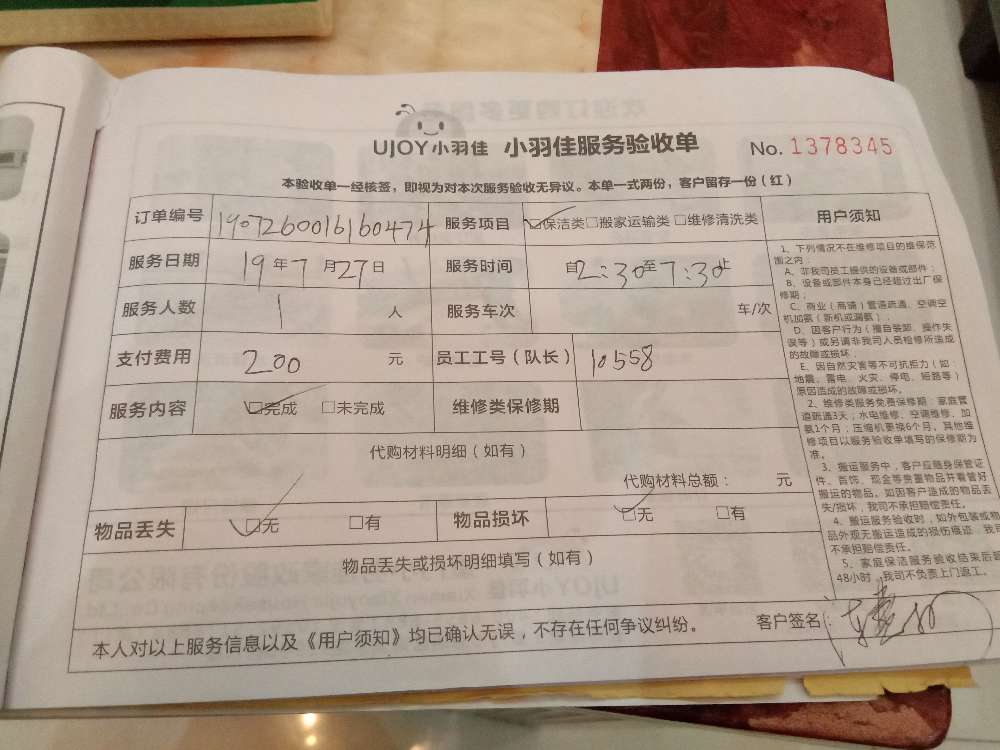 UJOY小羽佳 小羽佳服务验收单 No. 1378345
本验收单一经核签，即视为对本次服务验收无异议。本单一式两份，客户留存一份（红）
订单编号 1907260016160474 服务项目 ☑保洁类□搬家运输类□维修清洗类
服务日期 19年7月27日 服务时间 自2:30至7:30止
服务人数 1 人 服务车次 车/次
支付费用 200 元 员工工号（队长） 10558
服务内容 ☑完成 □未完成 维修类保修期
代购材料明细（如有）
代购材料总额： 元
物品丢失 ☑无 □有 物品损坏 ☑无 □有
物品丢失或损坏明细填写（如有）
本人对以上服务信息以及《用户须知》均已确认无误，不存在任何争议纠纷。 客户签名：
用户须知
1、下列情况不在维修项目的维保范
围之内：
A、非我司员工提供的设备或部件；
B、设备或部件本身已经超过出厂保
修期；
C、商业（商铺）管道疏通、空调空
机加氨（新机或漏氨）；
D、因客户行为（擅自装卸、操作失
误等）或另请非我司人员检修所造成
的故障或损坏；
E、因自然灾害等不可抗拒力（如：
地震、雷电、火灾、停电、短路等）
原因造成的故障或损坏。
2、维修类服务免费保修期：家庭管
道疏通3天；水电维修、空调维修、加
氨1个月；压缩机更换6个月。其他维
修项目以服务验收单填写的保修期为
准。
3、搬运服务中，客户应随身保管证
件、首饰、现金等贵重物品并看管好
搬运的物品。如因客户造成的物品丢
失/损坏，我司不承担赔偿责任。
4、搬运服务验收时，如外包装或物
品外观无搬运造成的损伤痕迹，我司
不承担赔偿责任。
5、家庭保洁服务验收结束后超
48小时，我司不负责上门返工。